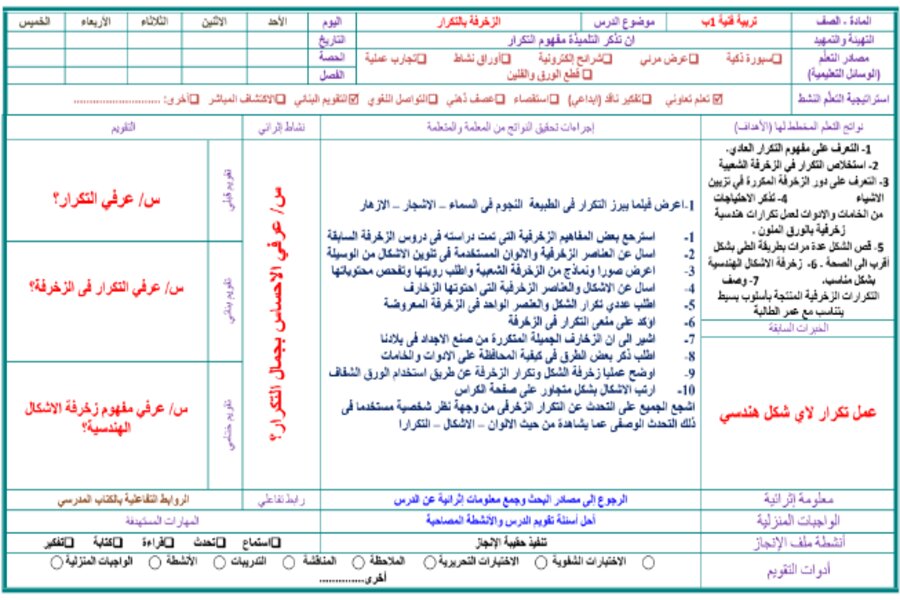 المادة - الصف تربية فنية 1ب موضوع الدرس الزخرفة بالتكرار اليوم الأحد الاثنين الثلاثاء الأربعاء الخميس
التهيئة والتمهيد ان تذكر التلميذة مفهوم التكرار التاريخ
مصادر التعلم (الوسائل التعليمية) ❑سبورة ذكية ❑عرض مرئي ❑شرائح إلكترونية ❑أوراق نشاط ❑تجارب عملية الحصة
❑ قطع الورق والفلين الفصل
استراتيجية التعلم النشط ☑ تعلم تعاوني ❑تفكير ناقد (ابداعي) ❑استقصاء ❑عصف ذهني ❑التواصل اللغوي ☑التقويم البنائي ❑الاكتشاف المباشر ❑أخرى: ............................
نواتج التعلم المخطط لها (الأهداف) إجراءات تحقيق النواتج من المعلمة والمتعلمة نشاط إثرائي التقويم
1- التعرف على مفهوم التكرار العادي.
2- استخلاص التكرار في الزخرفة الشعبية
3- التعرف على دور الزخرفة المكررة في تزيين
الاشياء 4- تذكر الاحتياجات
من الخامات والادوات لعمل تكرارات هندسية
زخرفية بالورق الملون .
5- قص الشكل عدة مرات بطريقة الطي بشكل
أقرب الى الصحة . 6- زخرفة الاشكال الهندسية
بشكل مناسب. 7- وصف
التكرارات الزخرفية المنتجة بأسلوب بسيط
يتناسب مع عمر الطالبة
الخبرات السابقة
عمل تكرار لاي شكل هندسي
1.اعرض فيلما يبرز التكرار فى الطبيعة النجوم فى السماء – الاشجار – الازهار
1- استرجع بعض المفاهيم الزخرفية التى تمت دراسته في دروس الزخرفة السابقة
2- اسال عن العناصر الزخرفية والالوان المستخدمة فى تلوين الاشكال من الوسيلة
3- اعرض صورا ونماذج من الزخرفة الشعبية واطلب رويتها وتفحص محتوياتها
4- اسال عن الاشكال والعناصر الزخرفية التى احتوتها الزخارف
5- اطلب عددي تكرار الشكل والعنصر الواحد فى الزخرفة المعروضة
6- اوكد على منعى التكرار فى الزخرفة
7- اشير الى ان الزخارف الجميلة المتكررة من صنع الاجداد فى بلادنا
8- اطلب ذكر بعض الطرق فى كيفية المحافظة على الادوات والخامات
9- اوضح عمليا زخرفة الشكل وتكرار الزخرفة عن طريق استخدام الورق الشفاف
10- ارتب الاشكال بشكل متجاور على صفحة الكراس
اشجع الجميع على التحدث عن التكرار الزخرفى من وجهة نظر شخصية مستخدما فى
ذلك التحدث الوصفى عما يشاهدة من حيث الالوان – الاشكال – التكرارا
س/ عرفي الاحساس بجمال التكرار؟
تقويم قبلي س/ عرفي التكرار؟
تقويم بنائي س/ عرفي التكرار فى الزخرفة؟
تقويم ختامي س/ عرفي مفهوم زخرفة الاشكال
الهندسية؟
معلومة إثرائية الرجوع إلى مصادر البحث وجمع معلومات إثرائية عن الدرس رابط تفاعلي الروابط التفاعلية بالكتاب المدرسي
الواجبات المنزلية أحل أسئلة تقويم الدرس والأنشطة المصاحبة المهارات المستهدفة
أنشطة ملف الإنجاز تنفيذ حقيبة الإنجاز ❑استماع ❑تحدث ❑قراءة ❑كتابة ❑تفكير
أدوات التقويم الاختبارات الشفوية الاختبارات التحريرية الملاحظة المناقشة التدريبات الأنشطة الواجبات المنزلية
أخرى...............